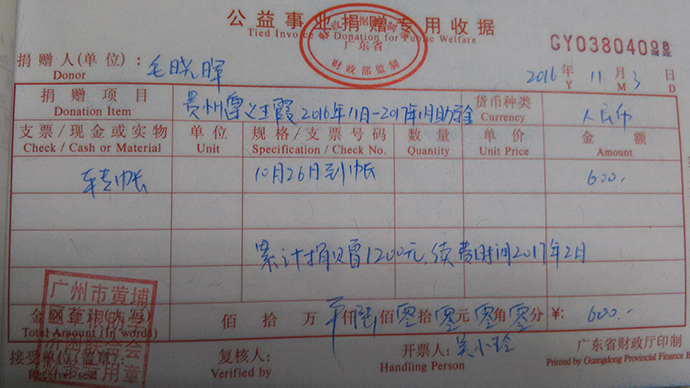 公益事业捐赠专用收据
Tied Invoice Donation for Public Welfare
广东省
财政部监制
GY0380409
捐赠人(单位):毛晓晖
Donor
2016年 11月 3日
Y M D
捐赠项目 贵州遵义王霞2016年11月-2017年1月助学金 货币种类 人民币
Donation Item Currency
支票/现金或实物 单位 规格/支票号码 数量 单价 金额
Check / Cash or Material Unit Specification / Check No. Quantity Unit Price Amount
转帐 10月26日到帐 600.-
累计捐赠1200元,续费时间2017年2月
广州市黄埔
金额合计(大写) 佰 拾 万 仟 陆佰零拾零元零角零分 ¥: 600.-
Total Amount (In words)
接受单位(盖章): 复核人: 开票人:吴小玲 广东省财政厅印制
Received seal Verified by Handling Person Printed by Guangdong Provincial Finance
专用章